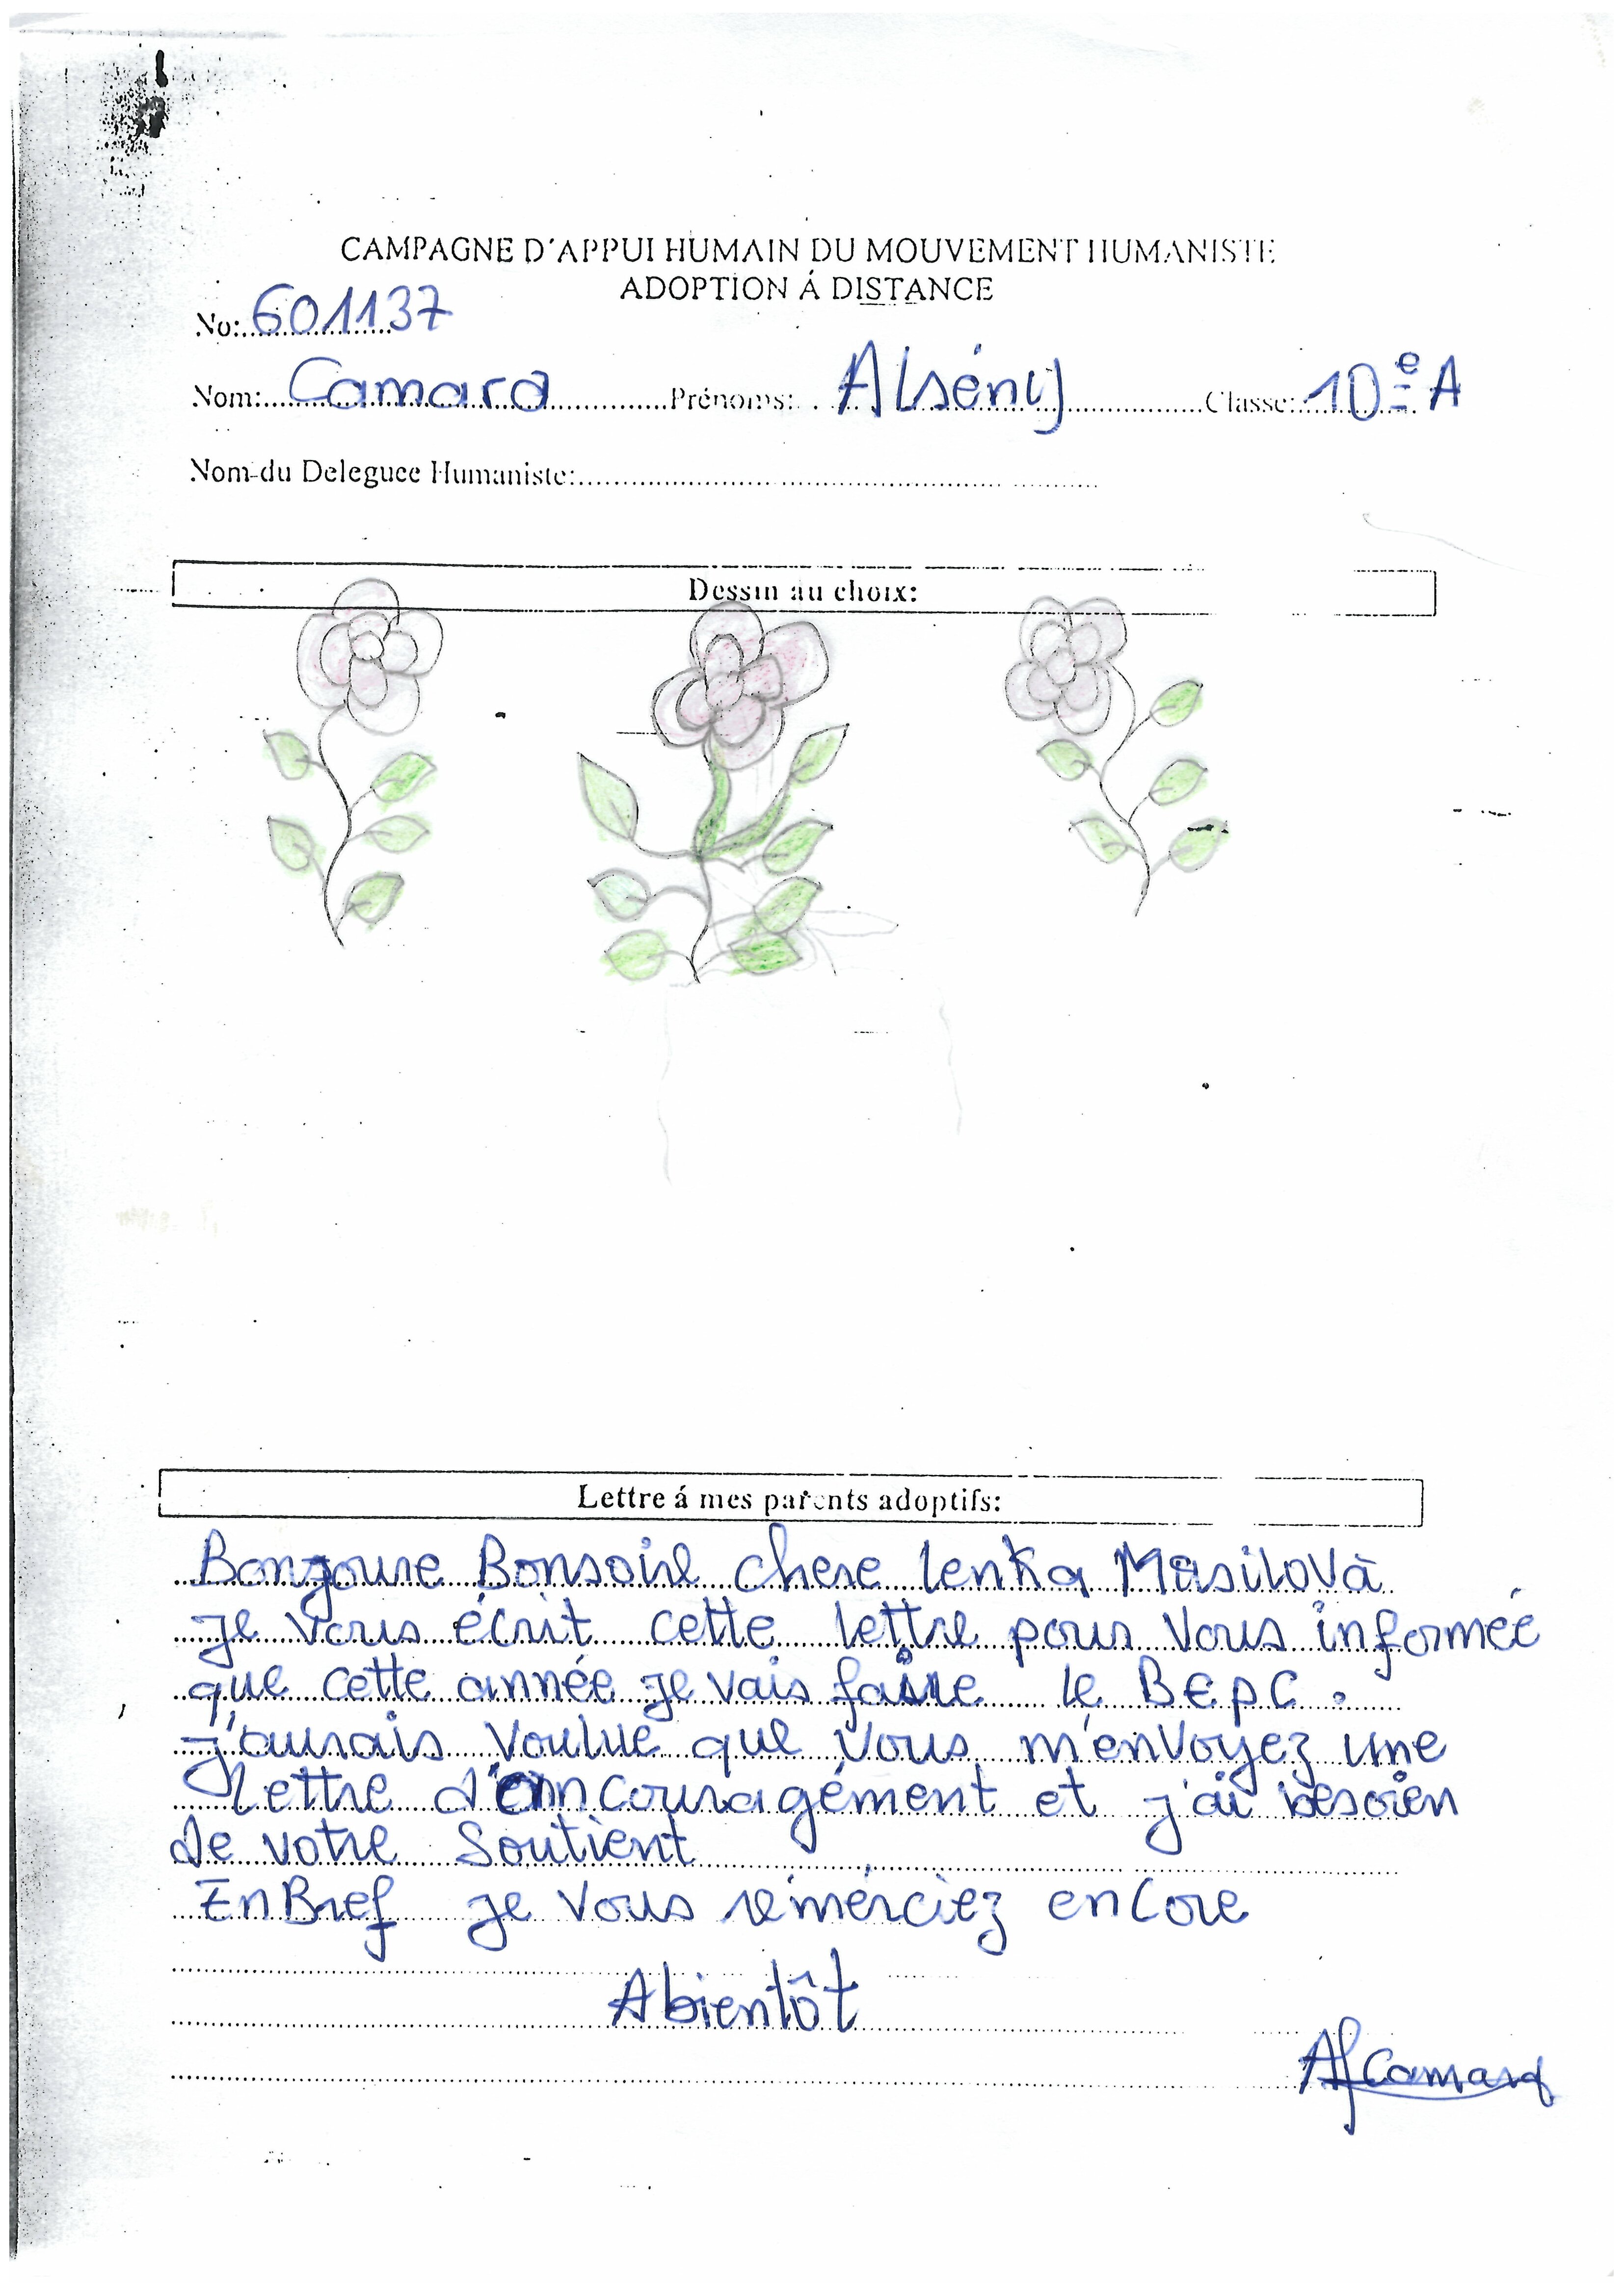 CAMPAGNE D'APPUI HUMAIN DU MOUVEMENT HUMANISTE
ADOPTION Á DISTANCE
No: 601137
Nom: Camara Prénoms: Alsény Classe: 10e A
Nom du Deleguee Humaniste:
Dessin au choix:
Lettre á mes parents adoptifs:
Bongoure Bonsoire chere lenka Masilovà
je vous écrit cette lettre pour vous informée
que cette année je vais faire le BEPC.
j'aurais voulue que vous m'envoyez une
lettre d'enncouragément et j'ai besoien
de votre soutient
EnBref je vous rémérciez encore
Abientôt
Af Camara